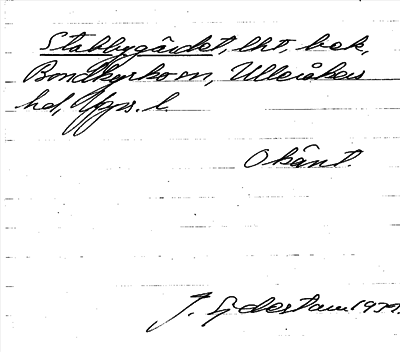 Stabbygärdet, lht, bek,
Bondkyrko sn, Ulleråkers
hd, Upps. l.
Okänt.
J. Sjdestam 1939.